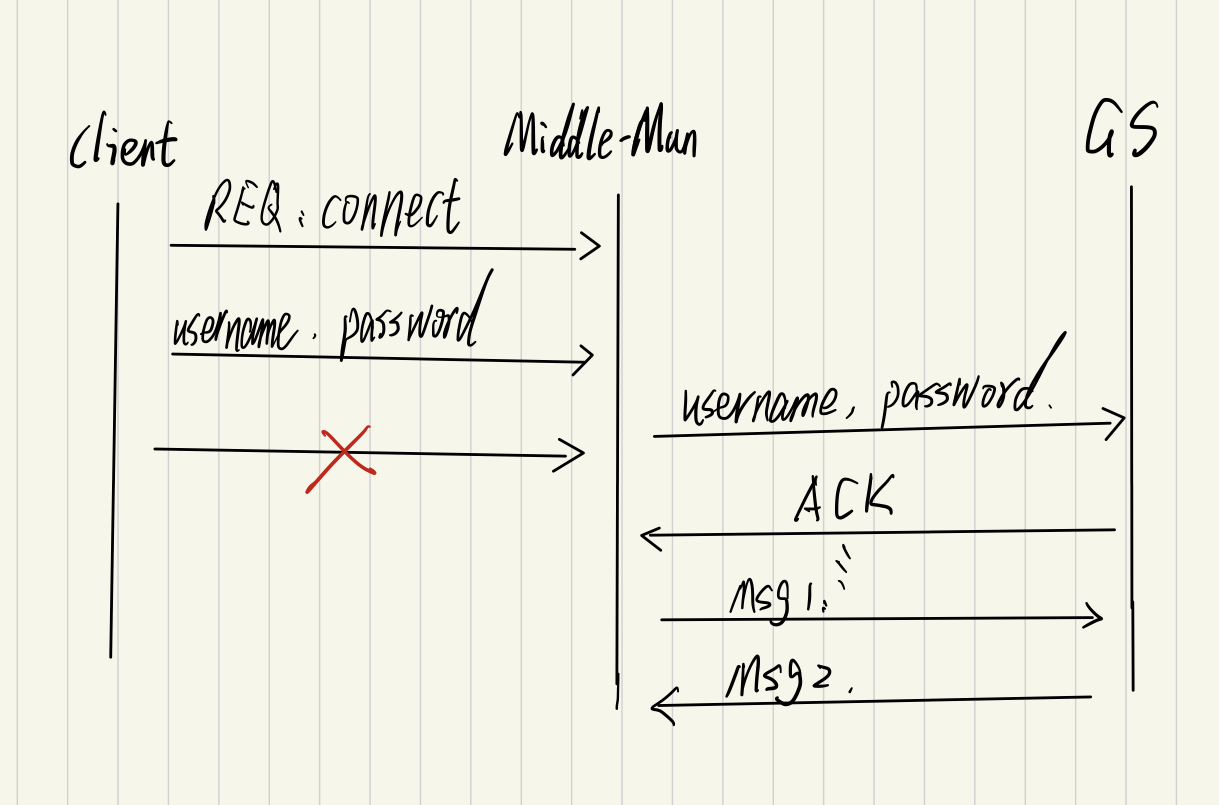 Client
Middle-Man
GS
REQ: connect
username, password
username, password.
ACK
msg 1.
msg 2.